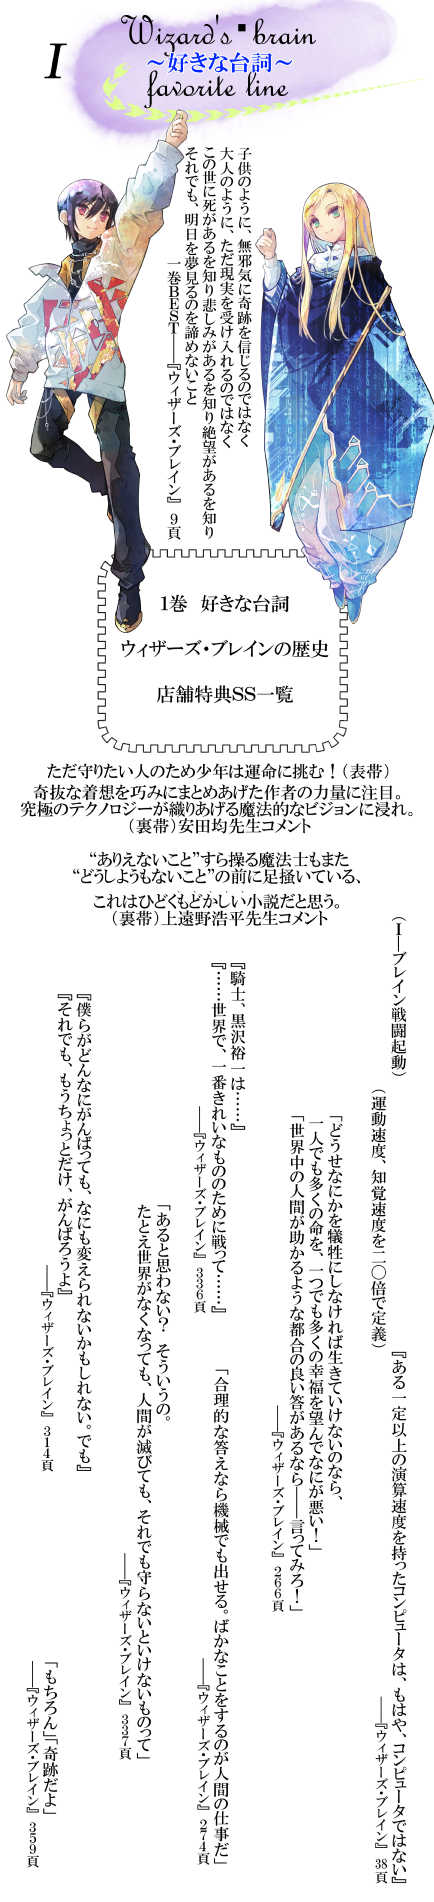 Wizard's brain
I
～好きな台詞～
favorite line
子供のように、無邪気に奇跡を信じるのではなく
大人のように、ただ現実を受け入れるのではなく
この世に死があるを知り悲しみがあるを知り絶望があるを知り
それでも、明日を夢見るのを諦めないこと
一巻BEST――『ウィザーズ・ブレイン』 9頁
1巻 好きな台詞
ウィザーズ・ブレインの歴史
店舗特典SS一覧
ただ守りたい人のため少年は運命に挑む！（表帯）
奇抜な着想を巧みにまとめあげた作者の力量に注目。
究極のテクノロジーが織りあげる魔法的なビジョンに浸れ。
（裏帯）安田均先生コメント
“ありえないこと”すら操る魔法士もまた
“どうしようもないこと”の前に足掻いている、
これはひどくもどかしい小説だと思う。
（裏帯）上遠野浩平先生コメント
（I―ブレイン戦闘起動）
（運動速度、知覚速度を二〇倍で定義）
『ある一定以上の演算速度を持ったコンピュータは、もはや、コンピュータではない』
――『ウィザーズ・ブレイン』 38頁
「どうせなにかを犠牲にしなければ生きていけないのなら、
一人でも多くの命を、一つでも多くの幸福を望んでなにが悪い！」
「世界中の人間が助かるような都合の良い答があるなら――言ってみろ！」
――『ウィザーズ・ブレイン』 266頁
『騎士、黒沢裕一は……』
『……世界で、一番きれいなもののために戦って……』
――『ウィザーズ・ブレイン』 336頁
「合理的な答えなら機械でも出せる。ばかなことをするのが人間の仕事だ」
――『ウィザーズ・ブレイン』 274頁
「あると思わない？ そういうの。
たとえ世界がなくなっても、人間が滅びても、それでも守らないといけないものって」
――『ウィザーズ・ブレイン』 337頁
『僕らがどんなにがんばっても、なにも変えられないかもしれない。でも』
『それでも、もうちょっとだけ、がんばろうよ』
――『ウィザーズ・ブレイン』 314頁
「もちろん」「奇跡だよ」
――『ウィザーズ・ブレイン』 359頁